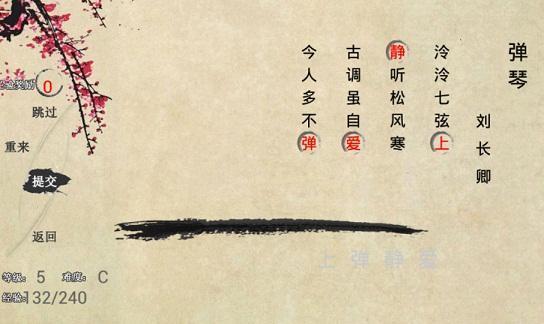 弹琴
刘长卿
泠泠七弦上
静听松风寒
古调虽自爱
今人多不弹
0
跳过
重来
提交
返回
上弹静爱
等级: 5 难度: C
经验: 132/240